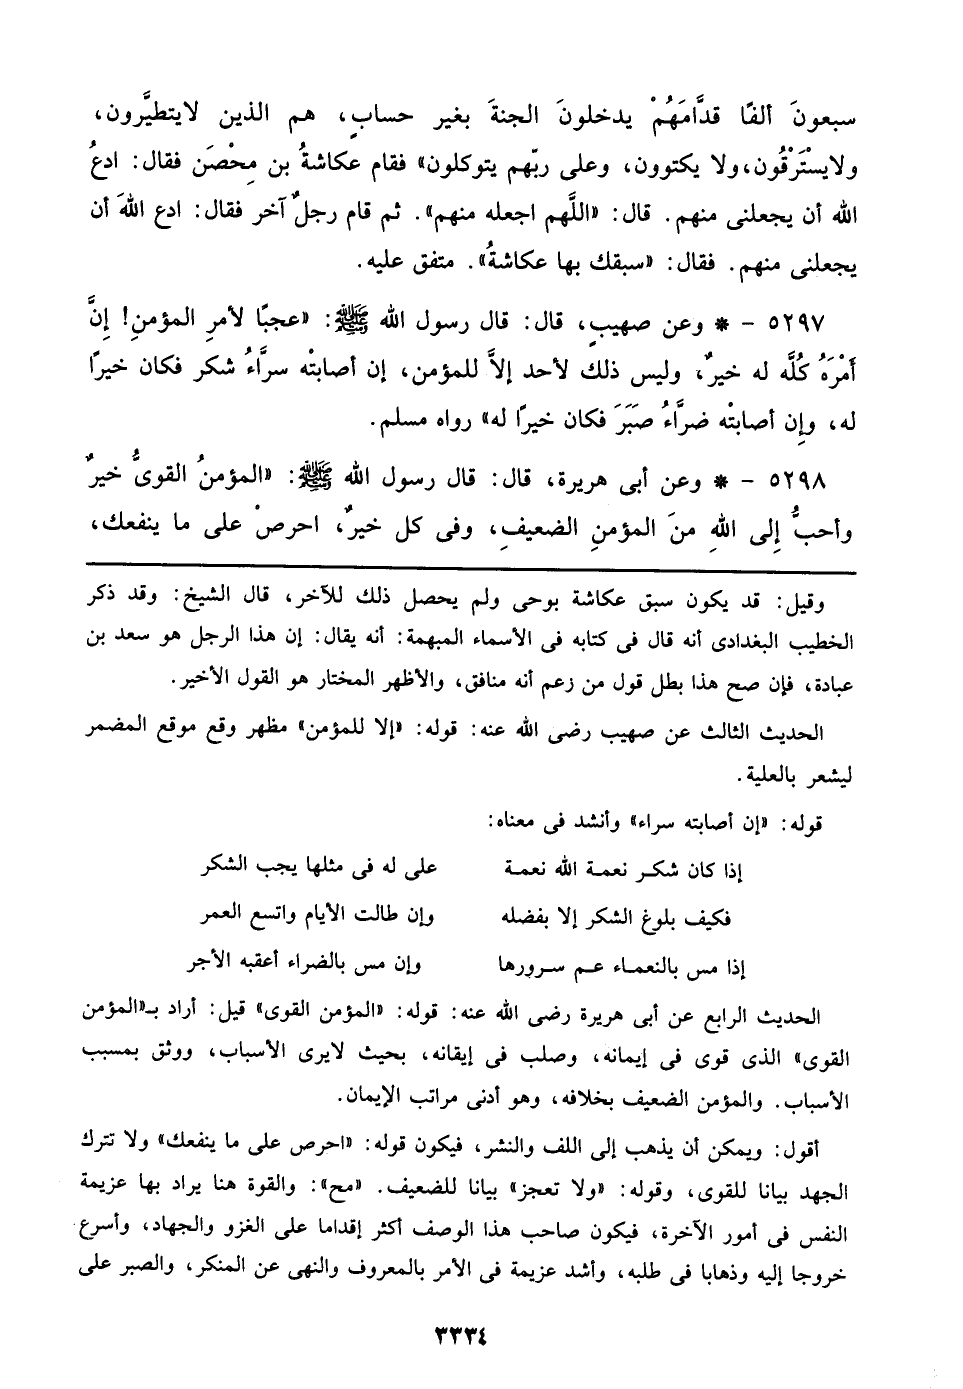 سبعونَ ألفًا قدَّامَهُمْ يدخلونَ الجنةَ بغير حسابٍ، هم الذين لايتطيَّرون،
ولايسْتَرْقُون،ولا يكتوون، وعلى ربّهم يتوكلون» فقام عكاشةُ بن مِحْصَن فقال: ادعُ
الله أن يجعلنى منهم. قال: «اللَّهم اجعله منهم». ثم قام رجلٌ آخر فقال: ادع اللهَ أن
يجعلنى منهم. فقال: «سبقك بها عكاشةُ». متفق عليه.
٥٢٩٧ - * وعن صهيبٍ، قال: قال رسول الله ﷺ: «عجبًا لأمرِ المؤمنِ! إنَّ
أَمْرَهُ كُلَّه له خيرٌ، وليس ذلك لأحد إلاَّ للمؤمن، إن أصابتْه سرَّاءُ شكر فكان خيرًا
له، وإن أصابتْه ضرَّاءُ صَبَرَ فكان خيرًا له» رواه مسلم.
٥٢٩٨ - * وعن أبى هريرة، قال: قال رسول الله ﷺ: «المؤمنُ القوىُّ خيرٌ
وأحبُّ إلى اللهِ منَ المؤمنِ الضعيفِ، وفى كل خيرٌ، احرصْ على ما ينفعك،
وقيل: قد يكون سبق عكاشة بوحى ولم يحصل ذلك للآخر، قال الشيخ: وقد ذكر
الخطيب البغدادى أنه قال فى كتابه فى الأسماء المبهمة: أنه يقال: إن هذا الرجل هو سعد بن
عبادة، فإن صح هذا بطل قول من زعم أنه منافق، والأظهر المختار هو القول الأخير.
الحديث الثالث عن صهيب رضى الله عنه: قوله: «إلا للمؤمن» مظهر وقع موقع المضمر
ليشعر بالعلية.
قوله: «إن أصابته سراء» وأنشد فى معناه:
إذا كان شكر نعمة الله نعمة على له فى مثلها يجب الشكر
فكيف بلوغ الشكر إلا بفضله وإن طالت الأيام واتسع العمر
إذا مس بالنعماء عم سرورها وإن مس بالضراء أعقبه الأجر
الحديث الرابع عن أبى هريرة رضى الله عنه: قوله: «المؤمن القوى» قيل: أراد بـ«المؤمن
القوى» الذى قوى فى إيمانه، وصلب فى إيقانه، بحيث لايرى الأسباب، ووثق بمسبب
الأسباب. والمؤمن الضعيف بخلافه، وهو أدنى مراتب الإيمان.
أقول: ويمكن أن يذهب إلى اللف والنشر، فيكون قوله: «احرص على ما ينفعك» ولا تترك
الجهد بيانا للقوى، وقوله: «ولا تعجز» بيانا للضعيف. «مح»: والقوة هنا يراد بها عزيمة
النفس فى أمور الآخرة، فيكون صاحب هذا الوصف أكثر إقداما على الغزو والجهاد، وأسرع
خروجا إليه وذهابا فى طلبه، وأشد عزيمة فى الأمر بالمعروف والنهى عن المنكر، والصبر على
٣٣٣٤